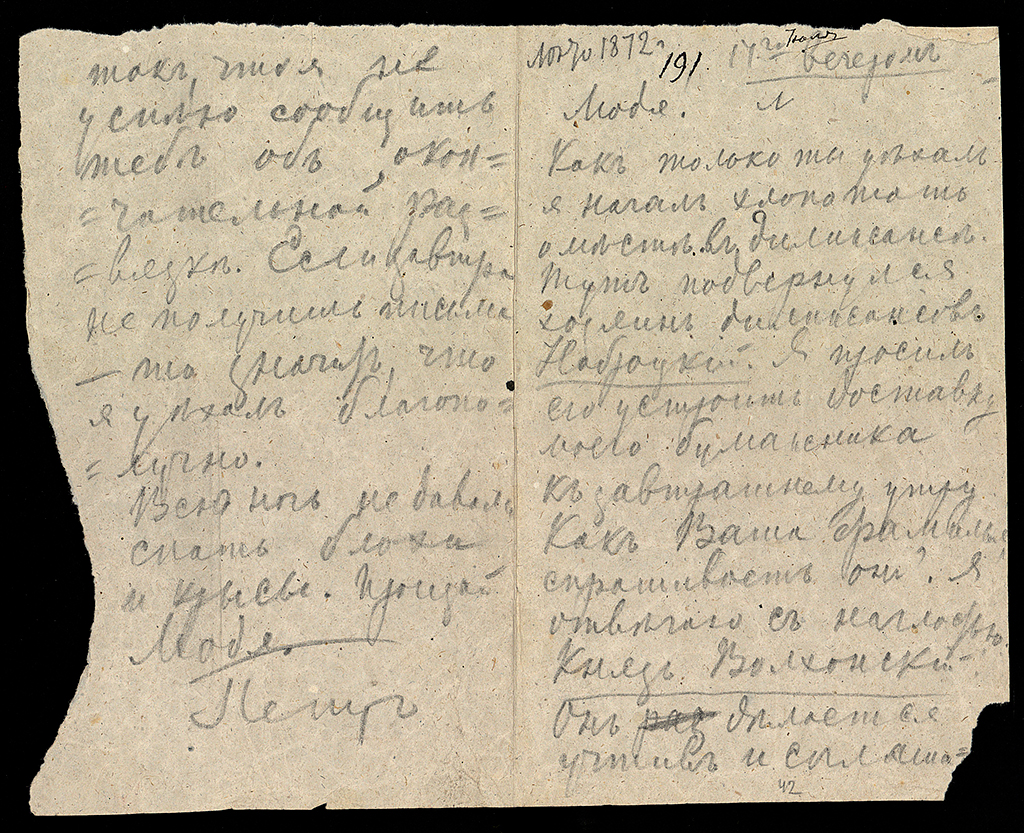 такъ, что я не
успѣю сообщить
тебѣ объ окон=
=чательной раз=
=вязкѣ. Если завтра
не получишь письма
— то значитъ, что
я уѣхалъ благопо=
=лучно.
Всю ночь не давали
спать блохи
и крысы. Прощай
Модя.
Петръ
1872 г. 191. Іюля вечеромъ
Модя.
Какъ только ты уѣхалъ
я началъ хлопотать
о мѣстѣ въ дилижансѣ.
Тутъ подвернулся
хозяинъ дилижансовъ
Набгоцкій. Я просилъ
его устроить доставку
моего бумажника
къ завтрашнему утру
Какъ Ваша Фамилья,
спрашиваетъ онъ? Я
отвѣчаю съ наглостью
Князь Волхонскій.
Онъ раз дѣлается
учтивъ и соглаша=
42